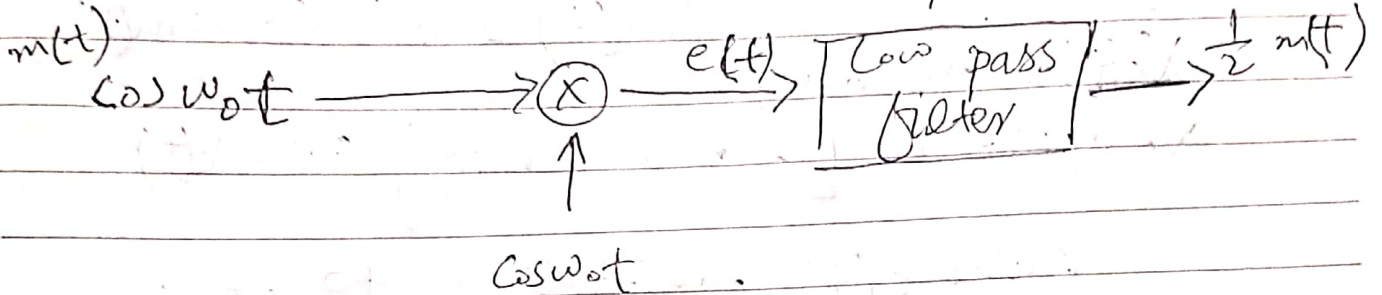 m(t)
cos w₀t
×
e(t)
Low pass
filter
1/2 m(t)
Cosw₀t